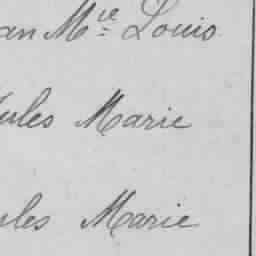 an Mie Louis
ules Marie
ules Marie